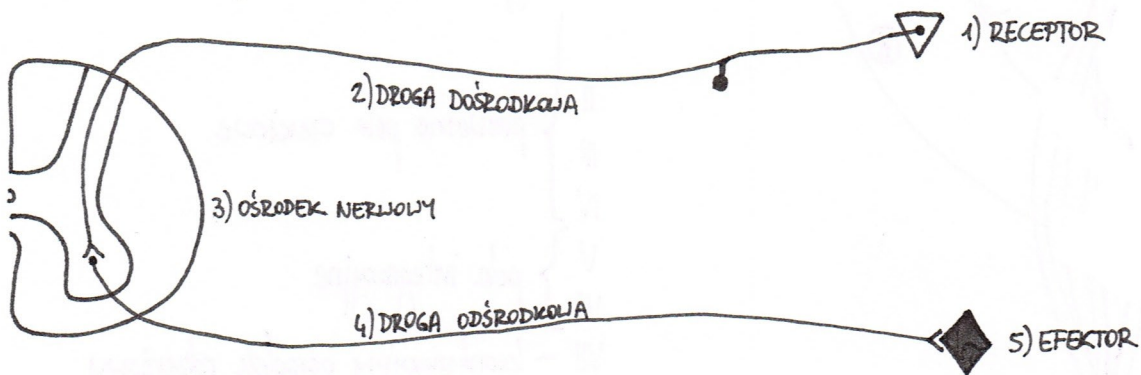 1) RECEPTOR
2) DROGA DOŚRODKOWA
3) OŚRODEK NERWOWY
4) DROGA ODŚRODKOWA
5) EFEKTOR